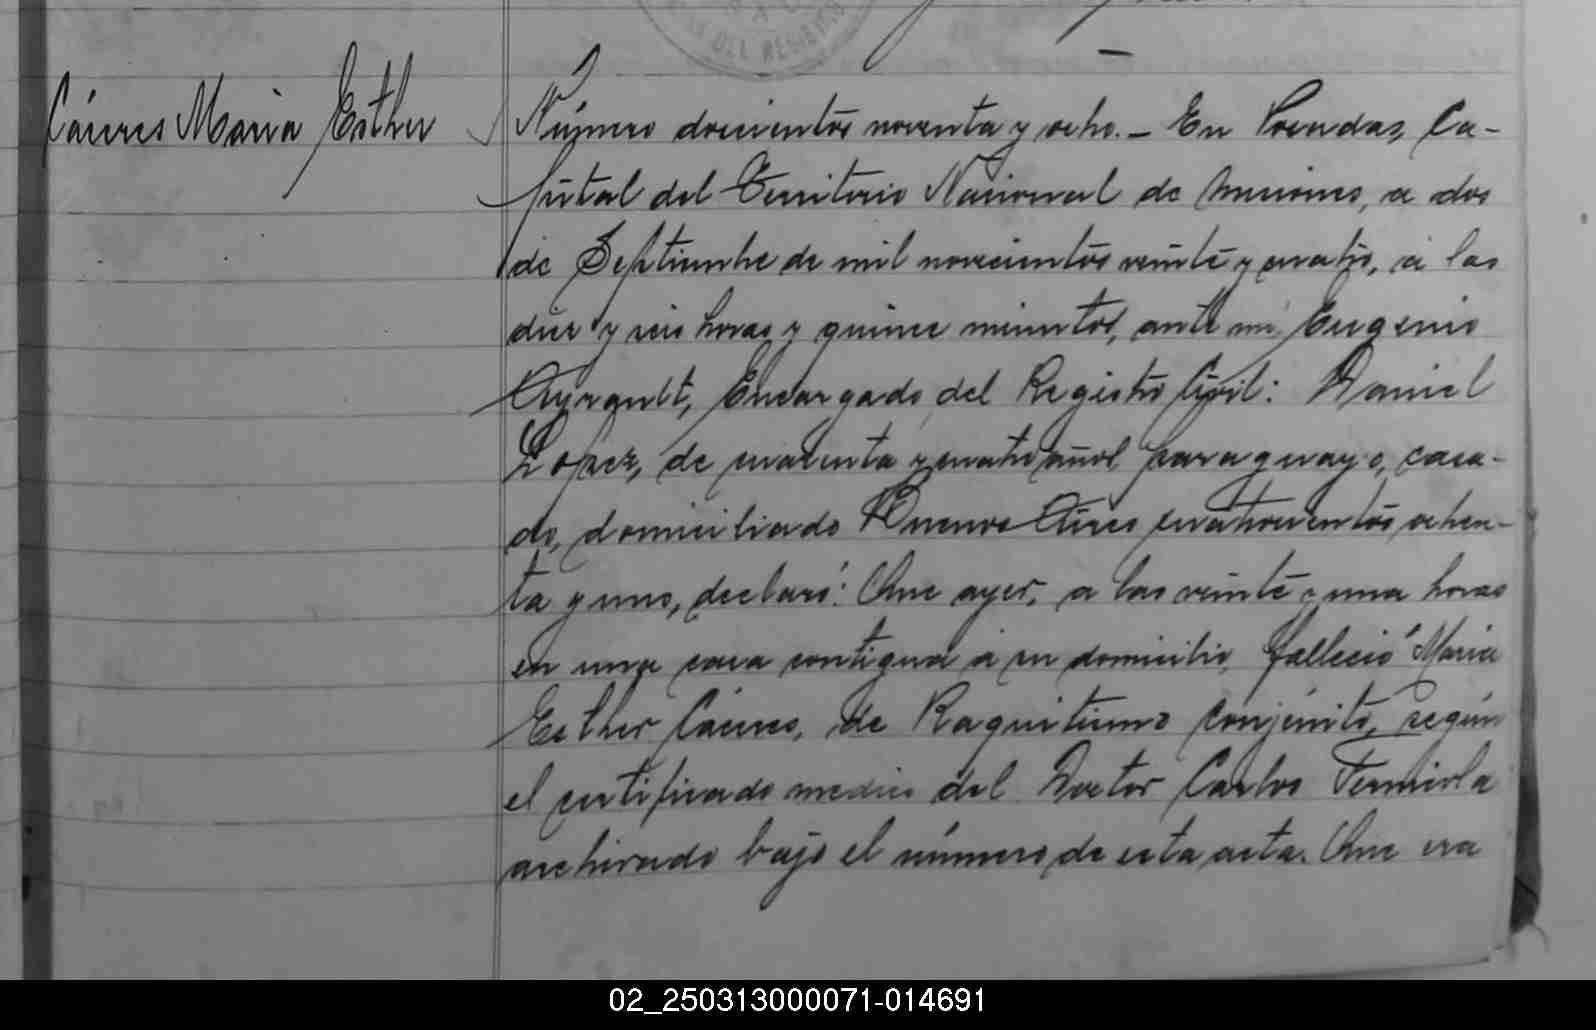 DEL REGISTRO
Cáceres Maria Esther
Número doscientos noventa y ocho.- En Posadas, Ca-
pital del Territorio Nacional de Misiones, a dos
de Septiembre de mil novecientos veinte y cuatro, a las
diez y seis horas y quince minutos, ante mi, Eugenio
Ayrault, Encargado del Registro Civil: Daniel
Lopez, de cuarenta y cuatro años paraguayo, casa-
do, domiciliado Buenos Aires cuatrocientos ochen-
ta y uno, declaró: Que ayer, a las veinte y una horas
en una casa contigua á su domicilio, falleció Maria
Esther Cáceres, de Raquitismo conjénito, según
el certificado medico del Doctor Carlos
archivado bajo el número de esta acta. Que era
02_250313000071-014691